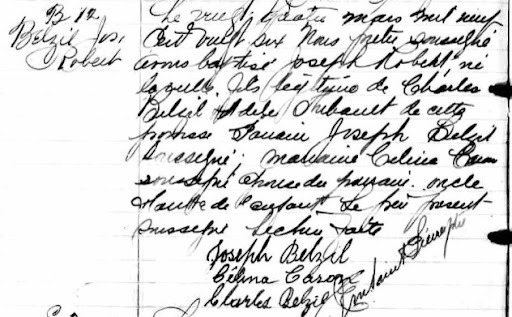 B 12
Belzil Jos.
Robert
Le vingt quatre mars mil neuf
cent vingt six Nous prêtre soussigné
avons baptisé Joseph Robert, né
la veille, fils légitime de Charles
Belzil et Adèle Thibault de cette
paroisse Parrain Joseph Belzil
soussigné; marraine Celina Caron
soussigné épouse du parrain oncle
et tante de l'enfant. Le père présent
soussigné Lecture faite
Joseph Belzil
Célina Caron
Charles Belzil